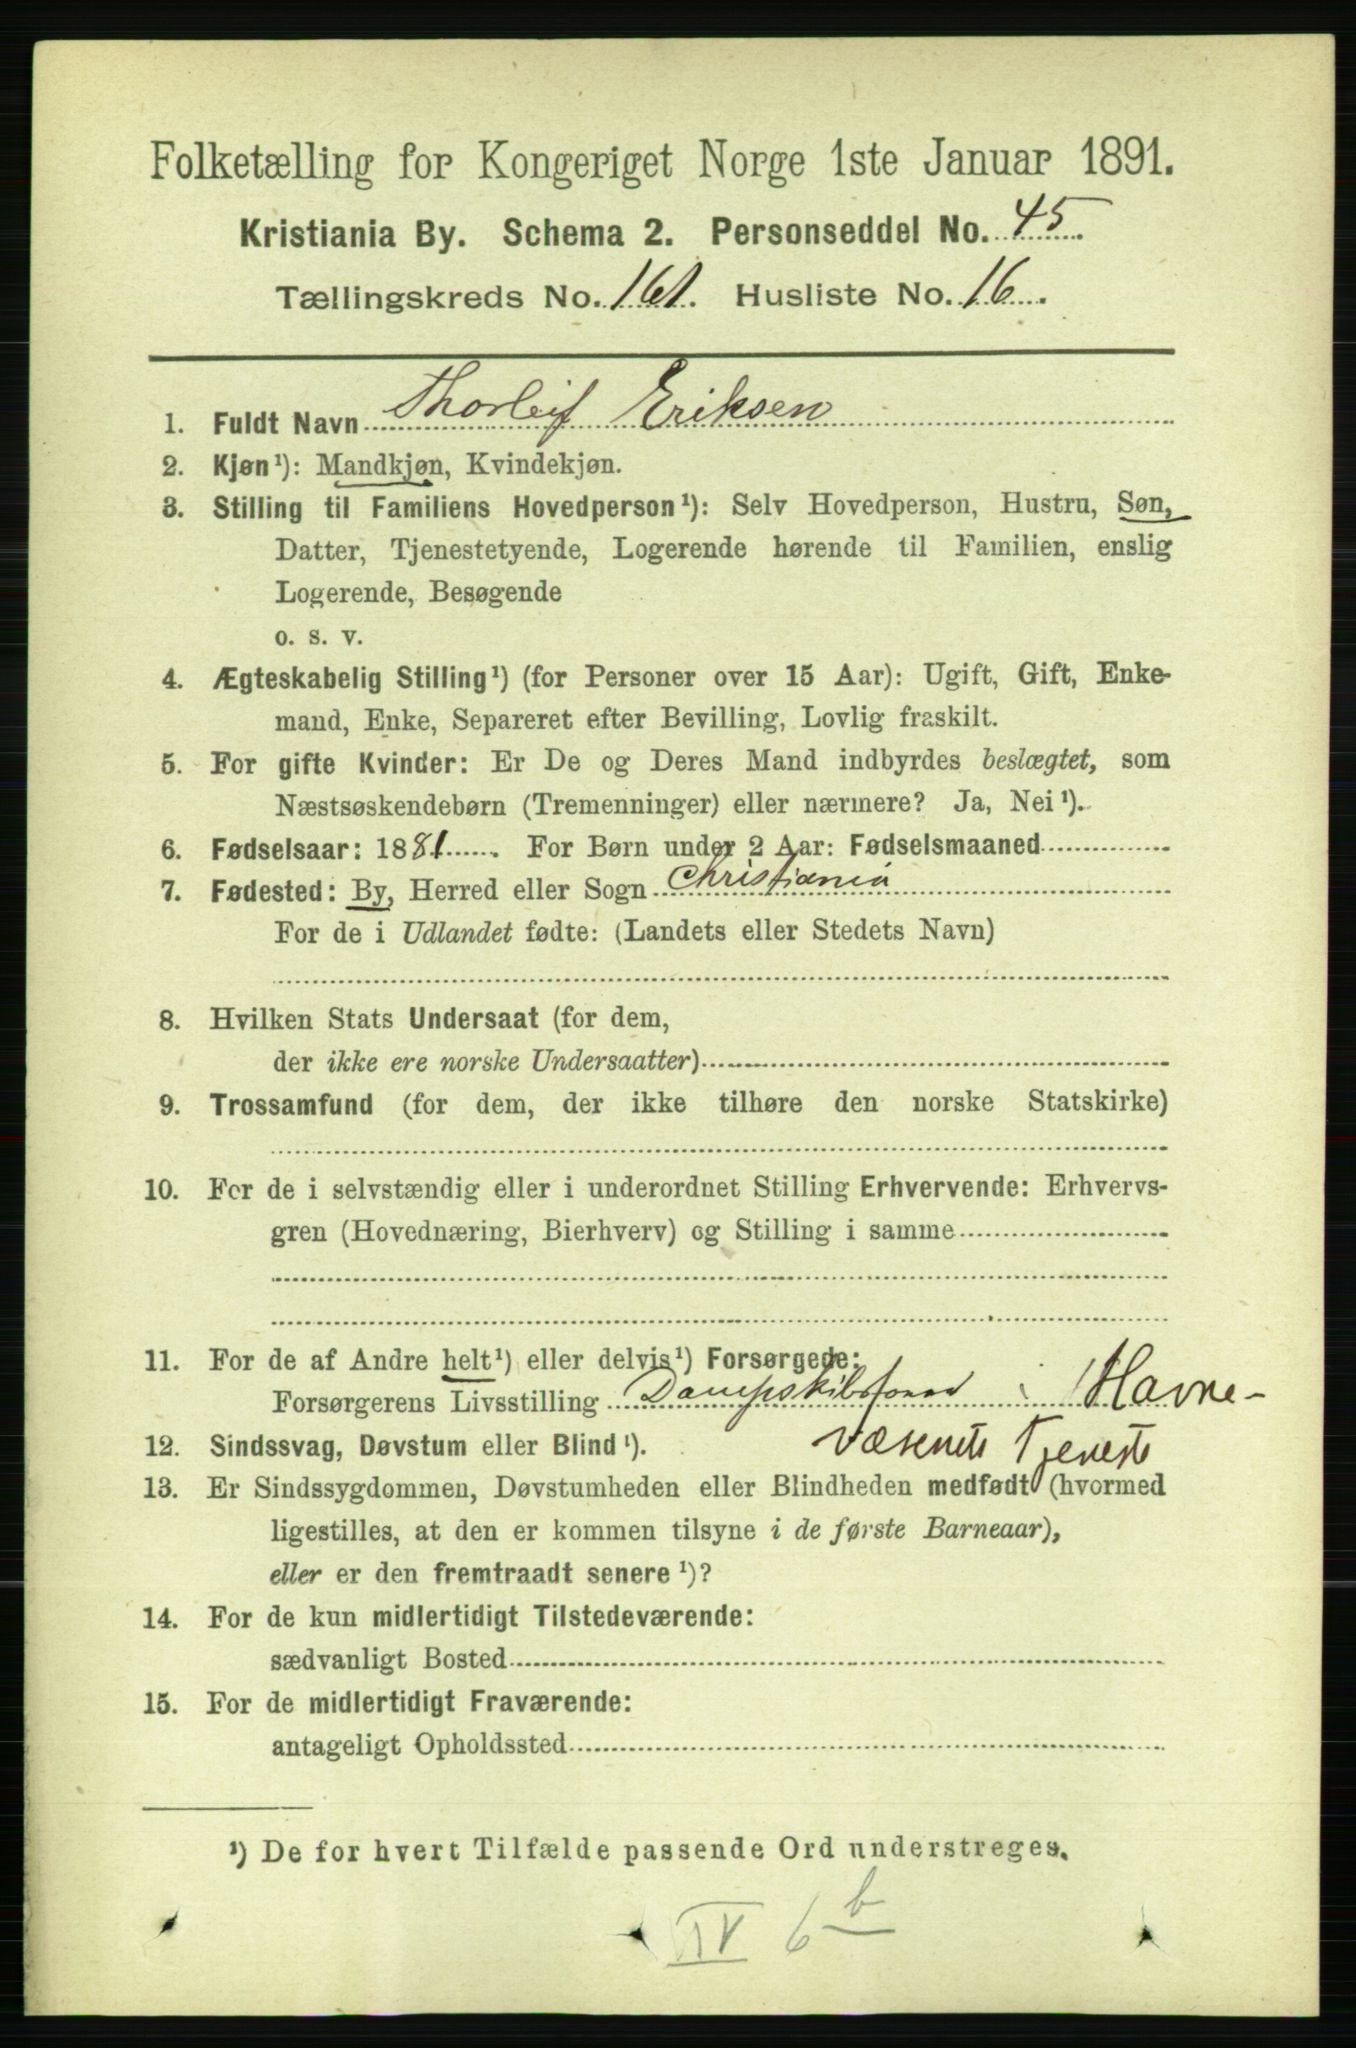 Folketælling for Kongeriget Norge 1ste Januar 1891.
Kristiania By. Schema 2. Personseddel No. 45.
Tællingskreds No. 161. Husliste No. 16.
1. Fuldt Navn Thorleif Eriksen
2. Kjøn¹): Mandkjøn, Kvindekjøn.
3. Stilling til Familiens Hovedperson¹): Selv Hovedperson, Hustru, Søn,
Datter, Tjenestetyende, Logerende hørende til Familien, enslig
Logerende, Besøgende
o. s. v.
4. Ægteskabelig Stilling¹) (for Personer over 15 Aar): Ugift, Gift, Enke-
mand, Enke, Separeret efter Bevilling, Lovlig fraskilt.
5. For gifte Kvinder: Er De og Deres Mand indbyrdes beslægtet, som
Næstsøskendebørn (Tremenninger) eller nærmere? Ja, Nei¹).
6. Fødselsaar: 1881. For Børn under 2 Aar: Fødselsmaaned
7. Fødested: By, Herred eller Sogn Christiania
For de i Udlandet fødte: (Landets eller Stedets Navn)
8. Hvilken Stats Undersaat (for dem,
der ikke ere norske Undersaatter)
9. Trossamfund (for dem, der ikke tilhøre den norske Statskirke)
10. For de i selvstændig eller i underordnet Stilling Erhvervende: Erhvervs-
gren (Hovednæring, Bierhverv) og Stilling i samme
11. For de af Andre helt¹) eller delvis¹) Forsørgede:
Forsørgerens Livsstilling i Havne-
12. Sindssvag, Døvstum eller Blind¹). væsenets Tjeneste
13. Er Sindssygdommen, Døvstumheden eller Blindheden medfødt (hvormed
ligestilles, at den er kommen tilsyne i de første Barneaar),
eller er den fremtraadt senere¹)?
14. For de kun midlertidigt Tilstedeværende:
sædvanligt Bosted
15. For de midlertidigt Fraværende:
antageligt Opholdssted
¹) De for hvert Tilfælde passende Ord understreges.
IV 6 b